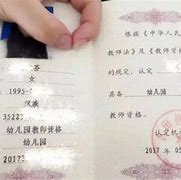 芬
女
1995-
汉族
35222
幼儿园教师资格
幼儿园
20173
根据《中华人民
教师法》及《教师资格
的规定，认定
具备 幼儿园
教师资格。
认定机
2017 年 05